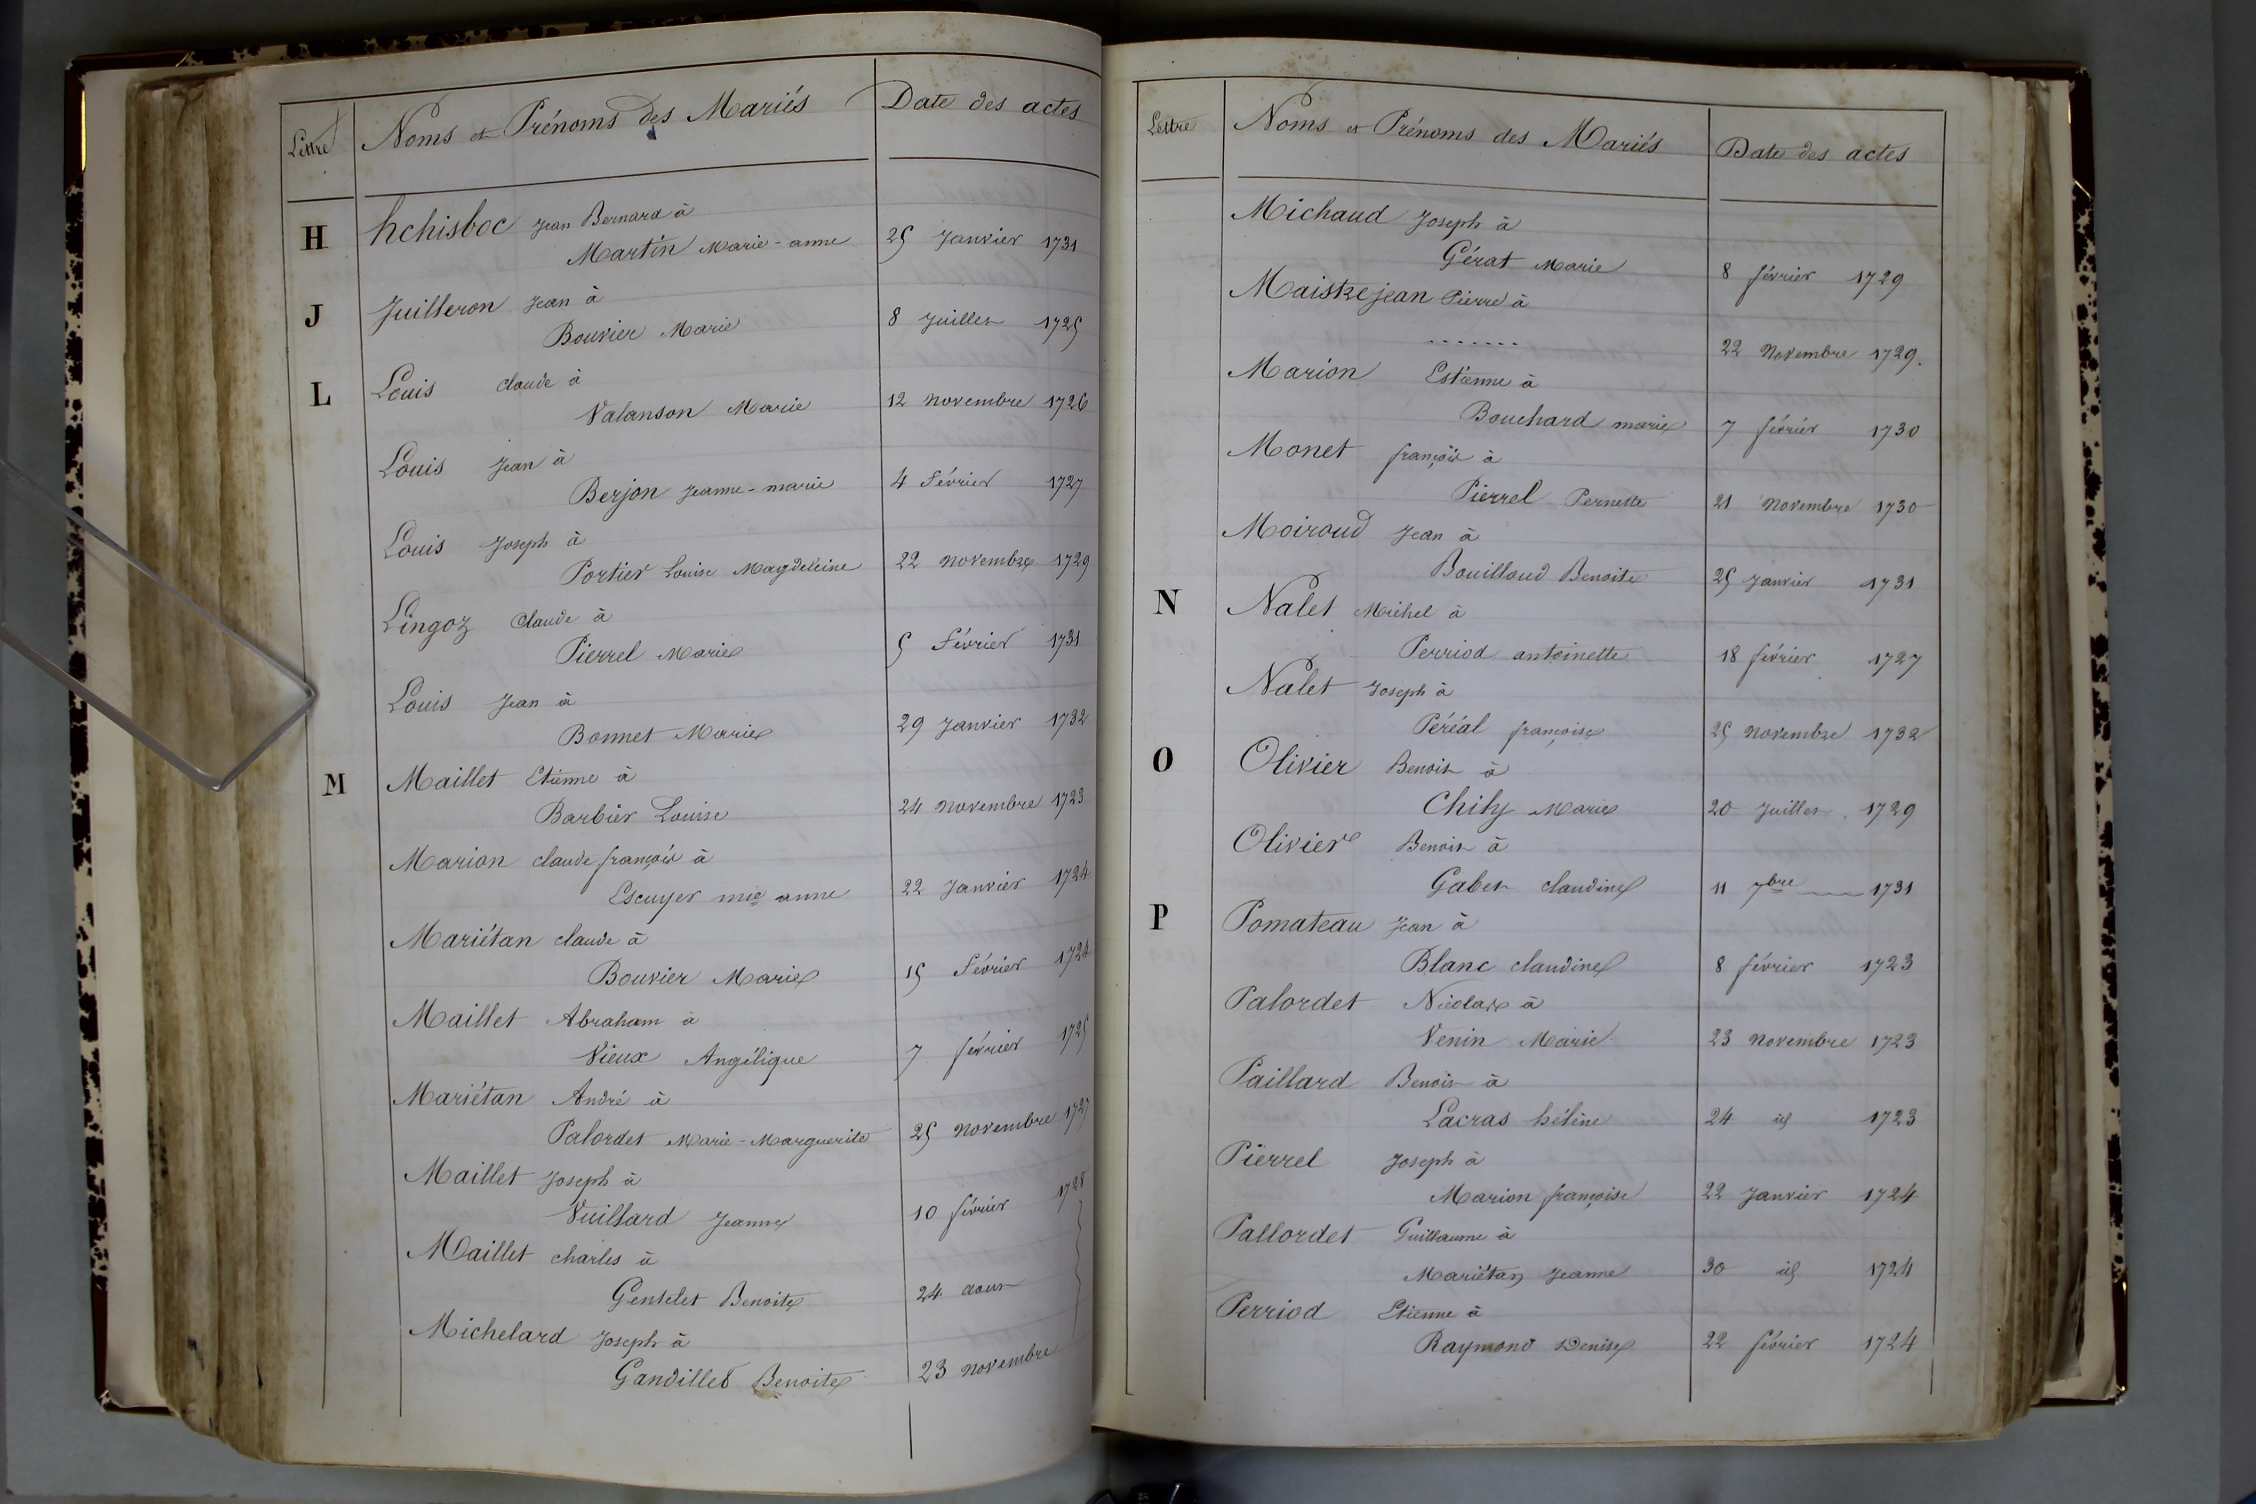 Lettre Noms et Prénoms des Mariés Date des actes
H hchisboc Jean Bernard à
Martin Marie-anne 25 Janvier 1731
J Juilleron Jean à
Bouvier Marie 8 Juillet 1725
L Louis claude à
Valanson Marie 12 novembre 1726
Louis Jean à
Berjon Jeanne-marie 4 Février 1727
Louis Joseph à
Portier Louise Magdeleine 22 novembre 1729
Lingoz Claude à
Pierrel Marie 5 Février 1731
Louis Jean à
Bonnet Marie 29 Janvier 1732
M Maillet Etienne à
Barbier Louise 24 novembre 1723
Marion claude françois à
Escuyer mie anne 22 Janvier 1724
Mariétan claude à
Bouvier Marie 15 Février 1724
Maillet Abraham à
Vieux Angélique 7 février 1725
Mariétan André à
Palordet Marie-Marguerite 25 novembre 1727
Maillet Joseph à
Vuillard Jeanne 10 février 1728
Maillet charles à
Gentelet Benoite 24 aout
Michelard Joseph à
Gandillet Benoite 23 novembre
Lettre Noms et Prénoms des Mariés Date des actes
Michaud Joseph à
Gérat Marie 8 février 1729
Maistrejean Pierre à
....... 22 Novembre 1729.
Marion Estienne à
Bouchard marie 7 février 1730
Monet françois à
Pierrel Pernette 21 Novembre 1730
Moiroud Jean à
Bouilloud Benoite 25 Janvier 1731
N Nalet Michel à
Perriod antoinette 18 février 1727
Nalet Joseph à
Péréal françoise 25 novembre 1732
O Olivier Benoit à
Chily Marie 20 Juillet 1729
Olivier Benoit à
Gabet claudine 11 7bre 1731
P Pomateau Jean à
Blanc claudine 8 février 1723
Palordet Nicolas à
Venin Marie 23 novembre 1723
Paillard Benoit à
Lacras hélène 24 id 1723
Pierrel Joseph à
Marion françoise 22 Janvier 1724
Pallordet Guillaume à
Mariétan Jeanne 30 id 1724
Perriod Etienne à
Raymond Denise 22 février 1724